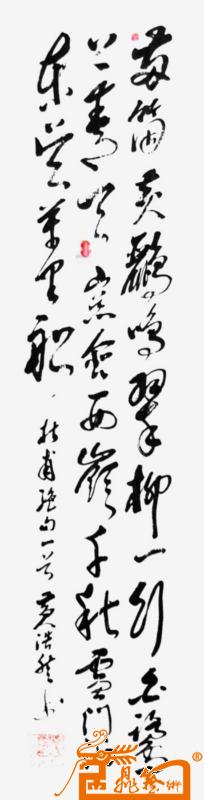 两个黄鹂鸣翠柳一行白鹭
上青天窗含西岭千秋雪门泊
东吴万里船
杜甫绝句一首 黄浩然书